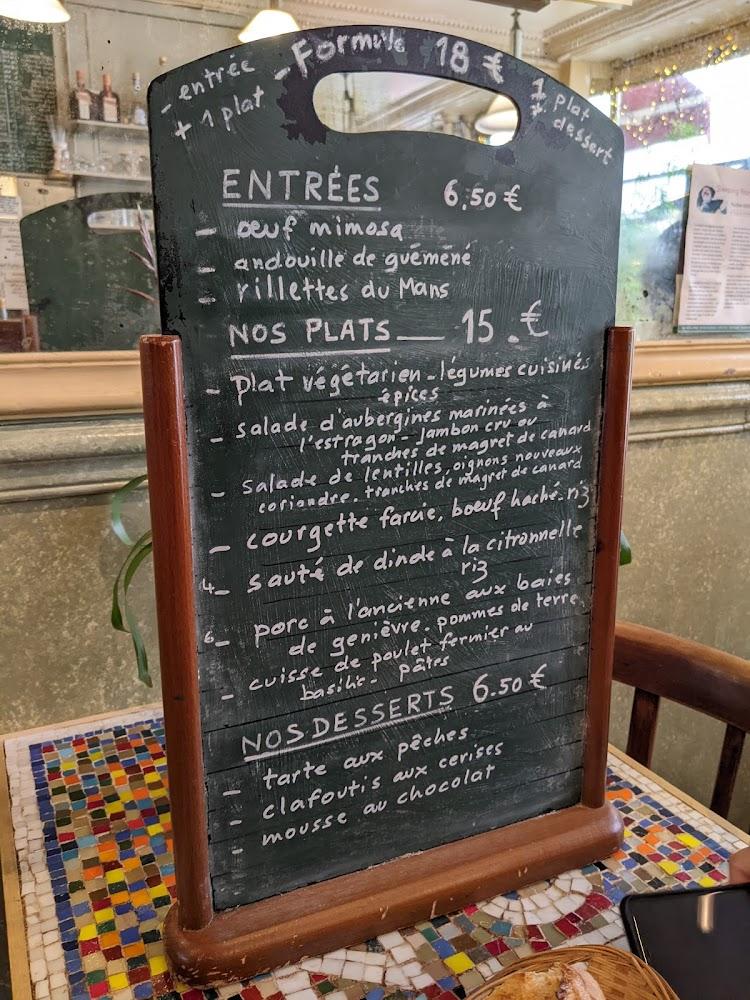 - Formule 18 €
- entrée
+ 1 plat
1 plat
+ dessert
ENTRÉES 6,50 €
- œuf mimosa
- andouille de guémené
- rillettes du Mans
NOS PLATS — 15.€
- plat végétarien - légumes cuisinés
épices
- salade d'aubergines marinées à
l'estragon - jambon cru ou
tranches de magret de canard
- salade de lentilles, oignons nouveaux
coriandre. tranches de magret de canard
- courgette farcie, bœuf haché. riz
4- sauté de dinde à la citronnelle
riz
6- porc à l'ancienne aux baies
de genièvre. pommes de terre
- cuisse de poulet fermier au
basilic - pâtes
NOS DESSERTS 6.50 €
- tarte aux pêches
- clafoutis aux cerises
- mousse au chocolat